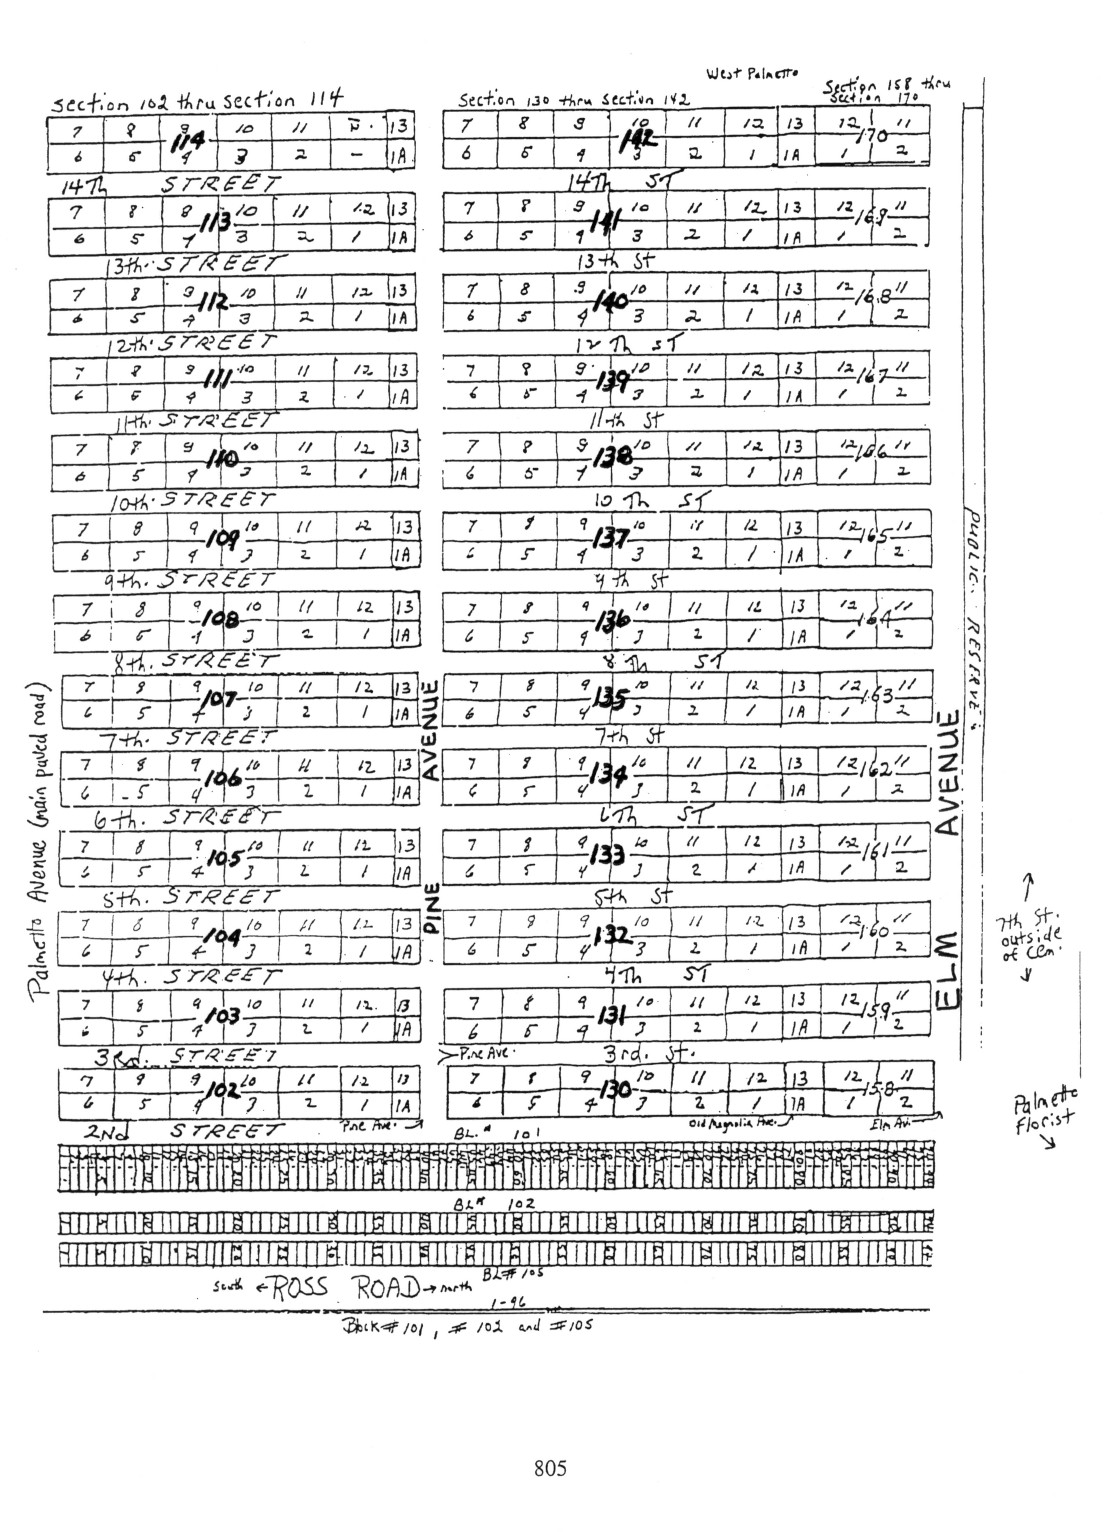 West Palmetto
Section 102 thru Section 114
Section 130 thru Section 142
Section 158 thru
Section 170
7 8 9 10 11 13
114
6 5 4 3 2 1A
7 8 9 10 11 12 13 12 11
142 170
6 5 4 3 2 1 1A 1 2
14Th STREET
14Th ST
7 8 8 10 11 12 13
113
6 5 4 3 2 1 1A
7 8 9 10 11 12 13 12 11
141 169
6 5 4 3 2 1 1A 1 2
13th. STREET
13th St
7 8 9 10 11 12 13
112
6 5 4 3 2 1 1A
7 8 9 10 11 12 13 12 11
140 168
6 5 4 3 2 1 1A 1 2
12th. STREET
12Th ST
7 8 9 10 11 12 13
111
6 5 4 3 2 1 1A
7 8 9 10 11 12 13 12 11
139 167
6 5 4 3 2 1 1A 1 2
11th. STREET
11th St
7 8 9 10 11 12 13
110
6 5 4 3 2 1 1A
7 8 9 10 11 12 13 12 11
138 166
6 5 4 3 2 1 1A 1 2
10th. STREET
10Th ST
7 8 9 10 11 12 13
109
6 5 4 3 2 1 1A
7 8 9 10 11 12 13 12 11
137 165
6 5 4 3 2 1 1A 1 2
9th. STREET
9th St
7 8 9 10 11 12 13
108
6 5 4 3 2 1 1A
7 8 9 10 11 12 13 12 11
136 164
6 5 4 3 2 1 1A 1 2
8th. STREET
8Th ST
7 8 9 10 11 12 13
107
6 5 4 3 2 1 1A
7 8 9 10 11 12 13 12 11
135 163
6 5 4 3 2 1 1A 1 2
7th. STREET
7th St
7 8 9 10 11 12 13
106
6 5 4 3 2 1 1A
7 8 9 10 11 12 13 12 11
134 162
6 5 4 3 2 1 1A 1 2
6th. STREET
6Th ST
7 8 9 10 11 12 13
105
6 5 4 3 2 1 1A
7 8 9 10 11 12 13 12 11
133 161
6 5 4 3 2 1 1A 1 2
5th. STREET
5th St
7 8 9 10 11 12 13
104
6 5 4 3 2 1 1A
7 8 9 10 11 12 13 12 11
132 160
6 5 4 3 2 1 1A 1 2
4th. STREET
4Th ST
7 8 9 10 11 12 13
103
6 5 4 3 2 1 1A
7 8 9 10 11 12 13 12 11
131 159
6 5 4 3 2 1 1A 1 2
3Rd. STREET
Pine Ave.
3rd. St.
7 9 9 10 11 12 13
102
6 5 4 3 2 1 1A
7 8 9 10 11 12 13 12 11
130 158
6 5 4 3 2 1 1A 1 2
2Nd STREET
Pine Ave.
Old Magnolia Ave.
Elm Av.
Palmetto Avenue (main paved road)
PINE AVENUE
ELM AVENUE
PUBLIC RESERVE
7th St.
outside
of Cem.
Palmetto
Florist
BL.# 101
BL# 102
BL# 105
south ← ROSS ROAD → north
1-96
Block # 101, # 102 and # 105
805